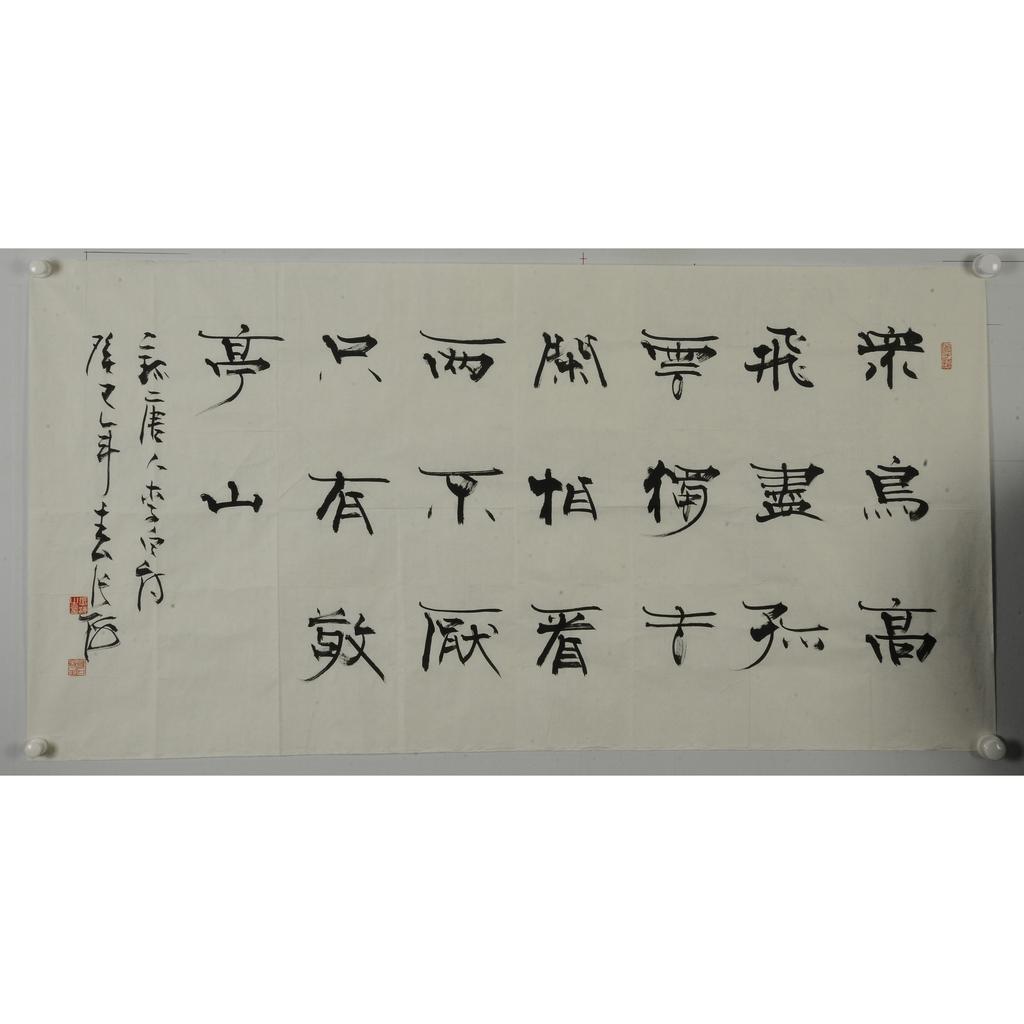 眾鳥高
飛盡孤
雲獨去
閑相看
兩不厭
只有敬
亭山
唐人李白詩
癸巳年